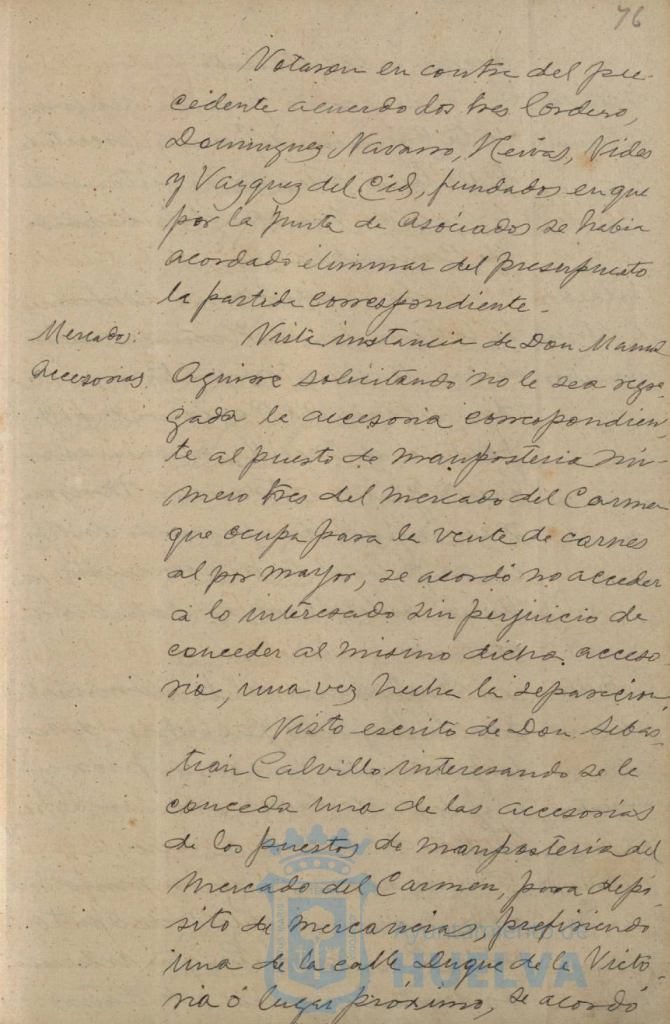 76
Votaron en contra del pre-
cedente acuerdo los Sres Cordero,
Dominguez Navarro, Nervas, Vides
y Vazquez del Cid, fundados en que
por la Junta de Asociados se habia
acordado eliminar del presupuesto
la partida correspondiente.
Mercados:
Accesorias.
Vista instancia de Don Manuel
Aguirre solicitando no le sea segre-
gada la accesoria correspondien-
te al puesto de mamposteria nú-
mero tres del mercado del Carmen
que ocupa para la venta de carnes
al por mayor, se acordó no acceder
a lo interesado sin perjuicio de
conceder al mismo dicha acceso-
ria, una vez hecha la separacion.
Visto escrito de Don Sebas-
tian Calvillo interesando se le
conceda una de las accesorias
de los puestos de mamposteria del
Mercado del Carmen, para depó-
sito de mercancias, prefiriendo
una de la calle Duque de la Victo-
ria ó lugar próximo, se acordó
Ayuntamiento de
HUELVA